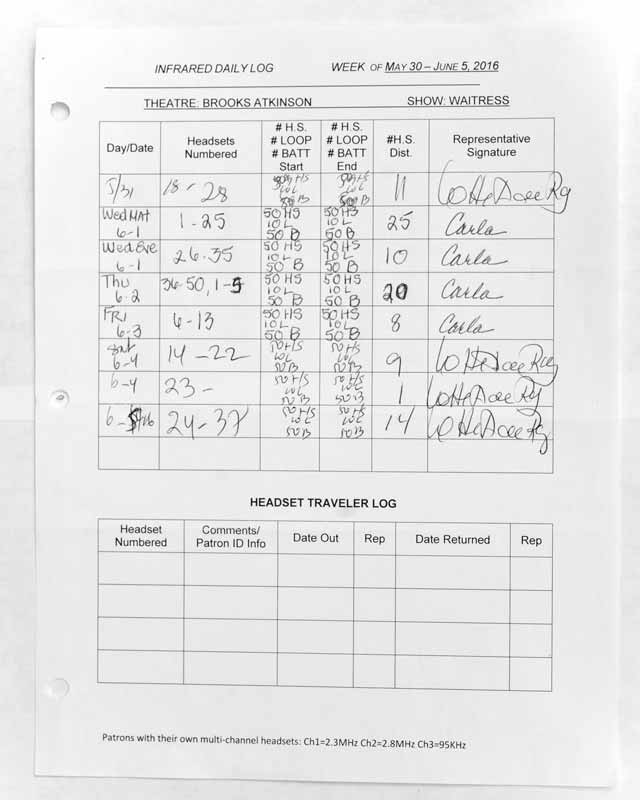 INFRARED DAILY LOG WEEK OF MAY 30 – JUNE 5, 2016
THEATRE: BROOKS ATKINSON SHOW: WAITRESS
Day/Date Headsets Numbered # H.S. # LOOP # BATT Start # H.S. # LOOP # BATT End #H.S. Dist. Representative Signature
5/31 18 - 28 50 HS 10 L 50 B 50 HS 10 L 50 B 11
Wed MAT 6-1 1-25 50 HS 10 L 50 B 50 HS 10 L 50 B 25 Carla
Wed Eve 6-1 26-35 50 HS 10 L 50 B 50 HS 10 L 50 B 10 Carla
Thu 6-2 36-50, 1-5 50 HS 10 L 50 B 50 HS 10 L 50 B 20 Carla
FRI 6-3 6-13 50 HS 10 L 50 B 50 HS 10 L 50 B 8 Carla
Sat 6-4 14-22 50 H/S 10 L 50 B 50 H/S 10 L 50 B 9
6-4 23- 50 H/S 10 L 50 B 50 H/S 10 L 50 B 1
24-37 50 H/S 10 L 50 B 50 H/S 10 L 50 B 14
HEADSET TRAVELER LOG
Headset Numbered Comments/ Patron ID Info Date Out Rep Date Returned Rep
Patrons with their own multi-channel headsets: Ch1=2.3MHz Ch2=2.8MHz Ch3=95KHz